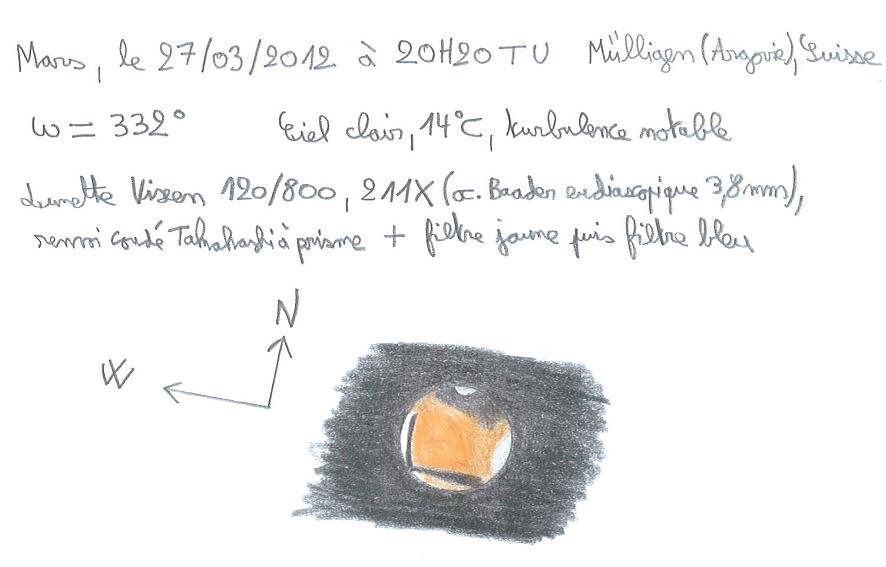 Mars, le 27/03/2012 à 20H20 TU Mülligen (Argovie), Suisse
ω = 332° Ciel clair, 14°C, turbulence notable
Lunette Vixen 120/800, 211X (oc. Baader eudiascopique 3,8mm),
renvoi coudé Takahashi à prisme + filtre jaune puis filtre bleu
N
W